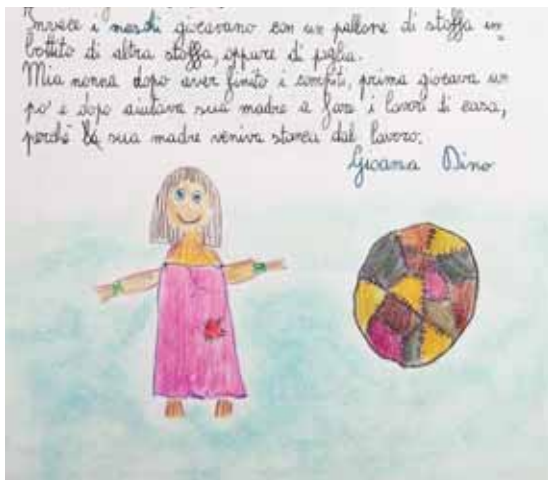 Invece i maschi giocavano con un pallone di stoffa im=
bottito di altra stoffa, oppure di paglia.
Mia nonna dopo aver finito i compiti, prima giocava un
po' e dopo aiutava sua madre a fare i lavori di casa,
perché la sua madre veniva stanca dal lavoro.
Gioana Dino